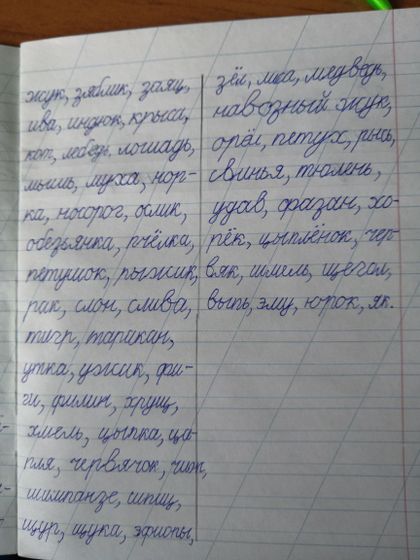 жук, зяблик, заяц,
ива, индюк, крыса,
кот, лебедь, лошадь,
мышь, муха, нор-
ка, носорог, ослик,
обезьянка, пчёлка,
петушок, рыжик,
рак, слон, слива,
тигр, таракан,
утка, ужик, фи-
ги, филин, хрущ,
хмель, цыпка, ца-
пля, червячок, чиж,
шимпанзе, шпиц,
щур, щука, эфиопы,
зёл, лиса, медведь,
навозный жук,
орёл, петух, рысь,
свинья, тюлень,
удав, фазан, хо-
рёк, цыплёнок, чер-
вяк, шмель, щегол,
выпь, эму, юрок, як.